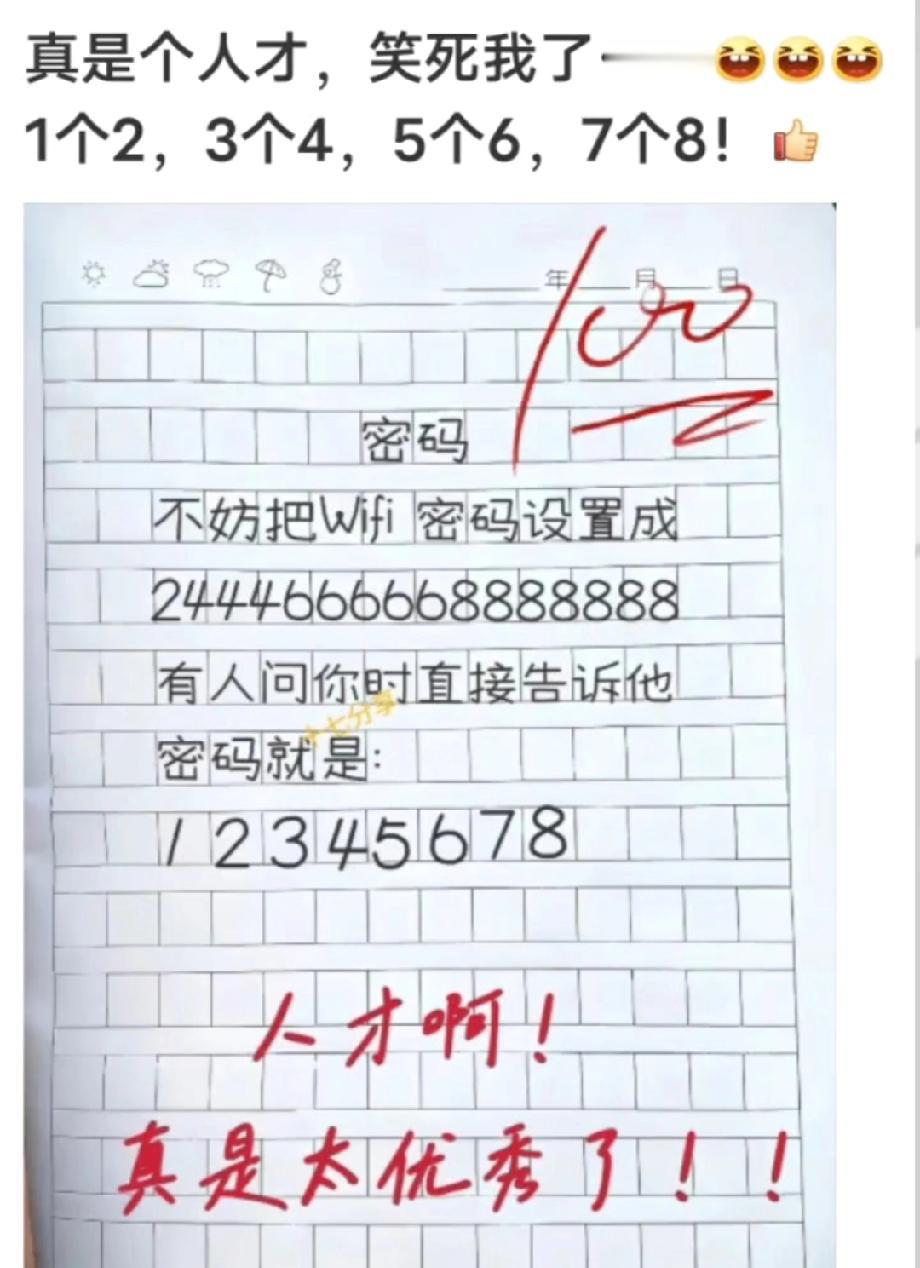 真是个人才，笑死我了一😆😆😆
1个2，3个4，5个6，7个8！👍
年 月 日
100
密码
不妨把Wifi 密码设置成
2444666668888888
有人问你时直接告诉他
十七分享
密码就是:
12345678
人才啊!
真是太优秀了!!